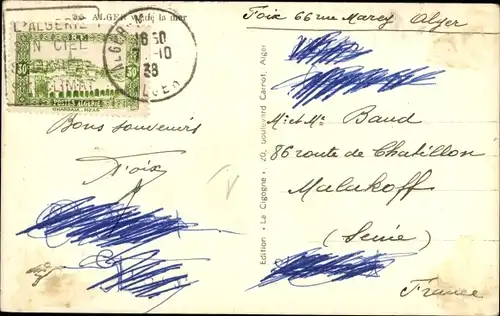 ALGER vu de la mer
Foix 66 rue Marey Alger
L'ALGERIE
UN CIEL
16 50
-10
38
ALGER
30
POSTES ALGERIE
GHARDAIA - MZAB
Bons souvenirs
Foix
Edition "La Cigogne", 20, boulevard Carnot, Alger
Mr et Mme Baud
86 route de Chatillon
Malakoff
(Seine)
France